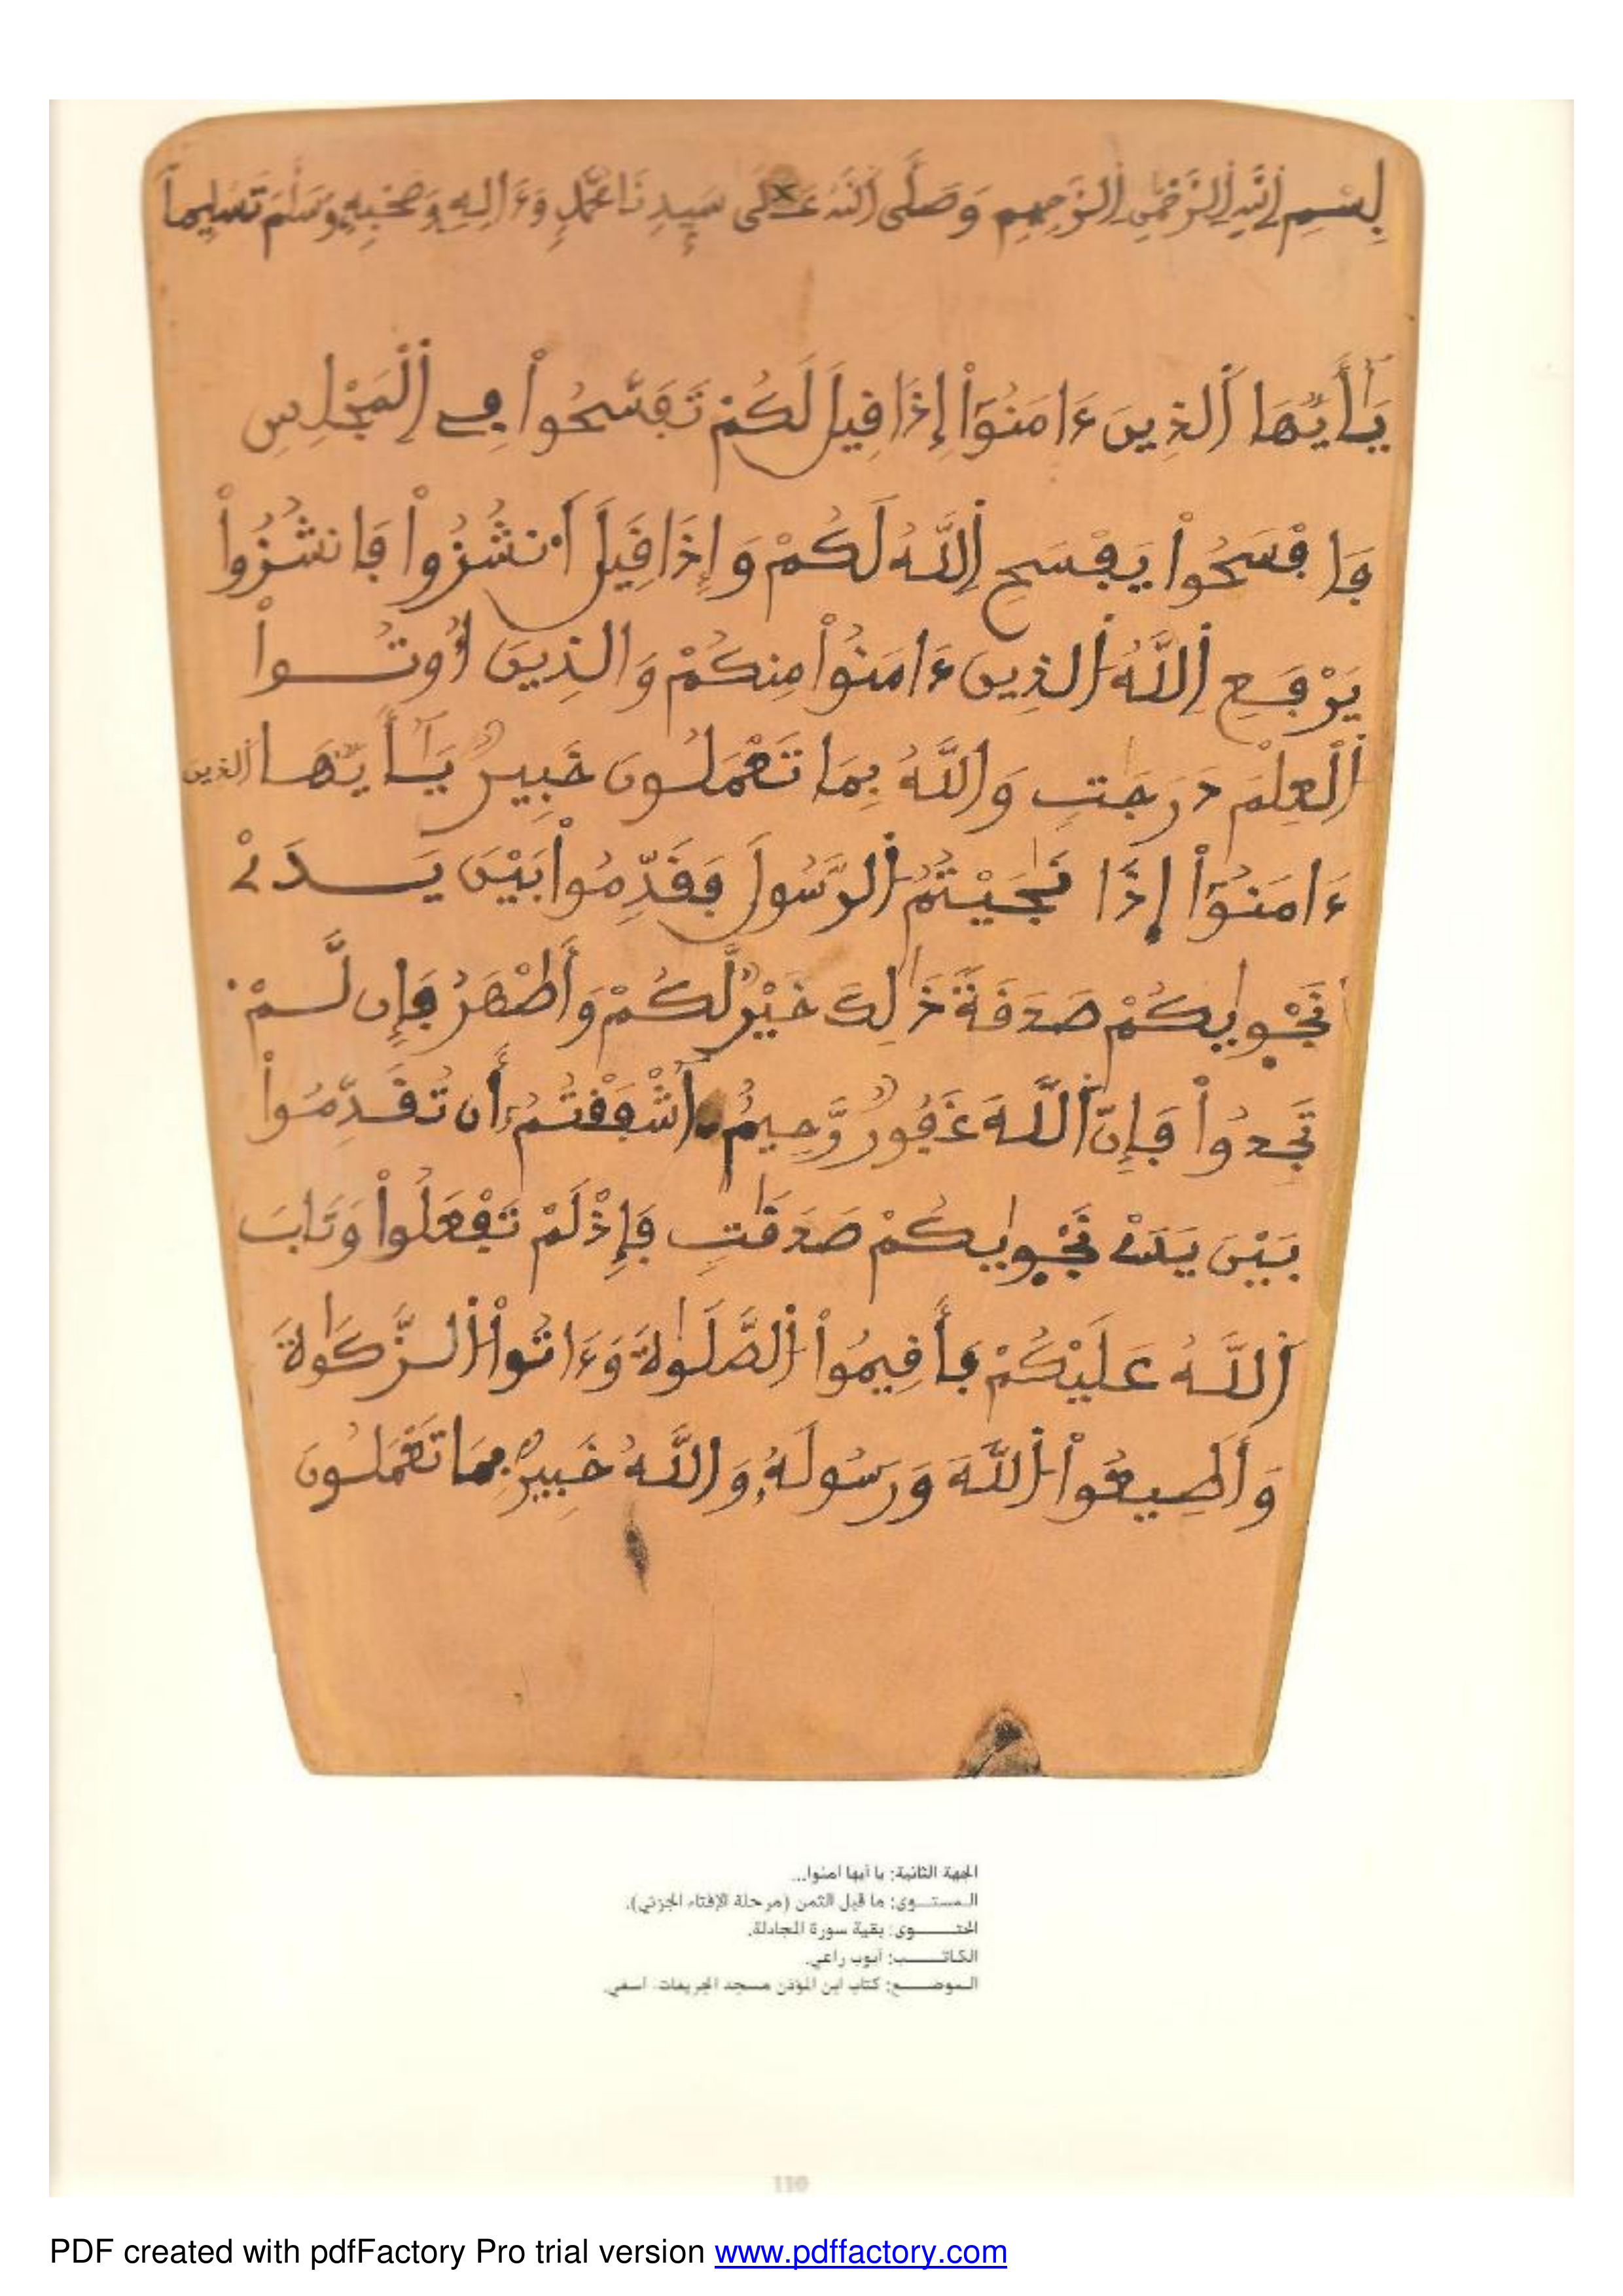 بِسْمِ اِللَّهِ اِلرَّحْمَٰنِ اِلرَّحِيمِ وَصَلَّى اَللَّهُ عَلَى سَيِّدِنَا مُحَمَّدٍ وَءَالِهِ وَصَحْبِهِ وَسَلَّمَ تَسْلِيماً
يَٰأَيُّهَا اَلذِينَ ءَامَنُوٓاْ إِذَا قِيلَ لَكُمْ تَفَسَّحُواْ فِے اِلْمَجْلِسِ
فَافْسَحُواْ يَفْسَحِ اِللَّهُ لَكُمْ وَإِذَا قِيلَ اَنشُزُواْ فَانشُزُواْ
يَرْفَعِ اِللَّهُ اُلذِينَ ءَامَنُواْ مِنكُمْ وَالذِينَ أُوتُواْ
اُلْعِلْمَ دَرَجَٰتٍ وَاللَّهُ بِمَا تَعْمَلُونَ خَبِيرٌ يَٰأَيُّهَا اَلذين
ءَامَنُوٓاْ إِذَا نَٰجَيْتُمُ اُلرَّسُولَ فَقَدِّمُواْ بَيْنَ يَدَےْ
نَجْوٰيكُمْ صَدَقَةً ذَٰلِكَ خَيْرٌ لَّكُمْ وَأَطْهَرُ فَإِن لَّمْ
تَجِدُواْ فَإِنَّ اَللَّهَ غَفُورٌ رَّحِيمٌ ءَآشْفَقْتُمُۥٓ أَن تُقَدِّمُواْ
بَيْنَ يَدَےْ نَجْوٰيكُمْ صَدَقَٰتٍ فَإِذْ لَمْ تَفْعَلُواْ وَتَابَ
اَللَّهُ عَلَيْكُمْ فَأَقِيمُواْ اُلصَّلَوٰةَ وَءَاتُواْ اُلزَّكَوٰةَ
وَأَطِيعُواْ اُللَّهَ وَرَسُولَهُۥ وَاللَّهُ خَبِيرٌ بِمَا تَعْمَلُونَ
الجهة الثانية: يا أيها آمنوا...
المستوى: ما قبل الثمن (مرحلة الإفتاء الجزئي).
المحتوى: بقية سورة المجادلة.
الكاتب: أيوب راعي.
الموضع: كتاب ابن المؤذن مسجد الجريفات، آسفي.
110
PDF created with pdfFactory Pro trial version www.pdffactory.com